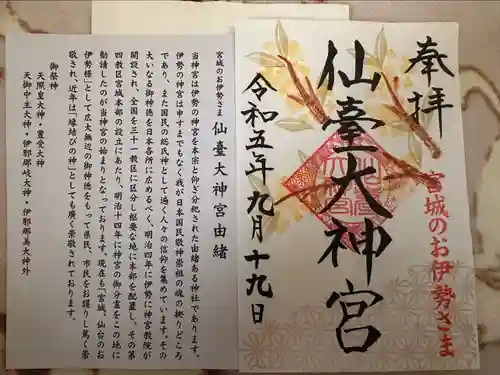 宮城のお伊勢さま 仙臺大神宮由緒
当神宮は伊勢の神宮を本宗と仰ぎ分祀された由緒ある神社であります。
伊勢の神宮は申すまでもなく我が日本国民敬神崇祖の魂の拠りどころ
であり、また国民の総氏神として遍く人々の信仰を集めています。その
大いなる御神徳を日本各所に広めるべく、明治四年に伊勢に神宮教院が
開設され、全国を三十一教区に区分し枢要な地に本部を配置し、その第
四教区宮城本部の設立にあたり、明治十四年に神宮の御分霊をこの地に
勧請したのが当神宮の始まりとなっております。現在も「宮城、仙台のお
伊勢様」として広大無辺の御神徳をもって県民、市民をお護りし篤く崇
敬され、近年は「縁結びの神」としても廣く崇敬されております。
御祭神
天照皇大神・豊受大神
天御中主大神・伊耶那岐大神・伊耶那美大神外
奉拝
宮城のお伊勢さま
仙臺大神宮
令和五年九月十九日